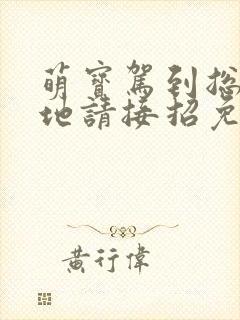 萌寶駕到總
地請接招免
黃行偉